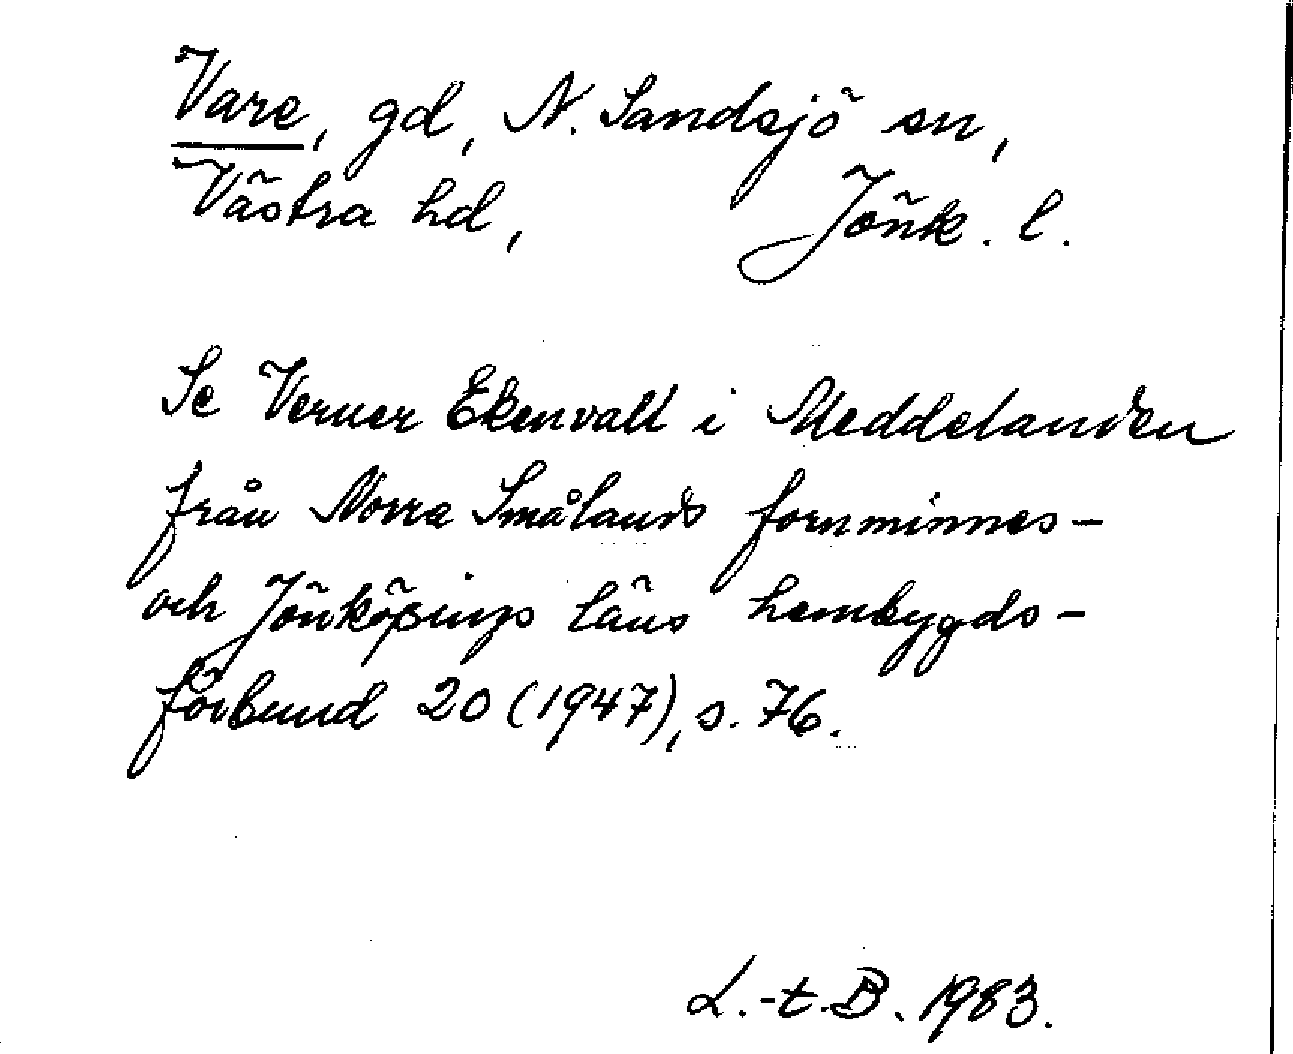 Vare, gd, N. Sandsjö sn,
Västra hd, Jönk. l.
Se Verner Ekenvall i Meddelanden
från Norra Smålands fornminnes-
och Jönköpings läns hembygds-
förbund 20 (1947), s. 76.
L.-t. B. 1983.